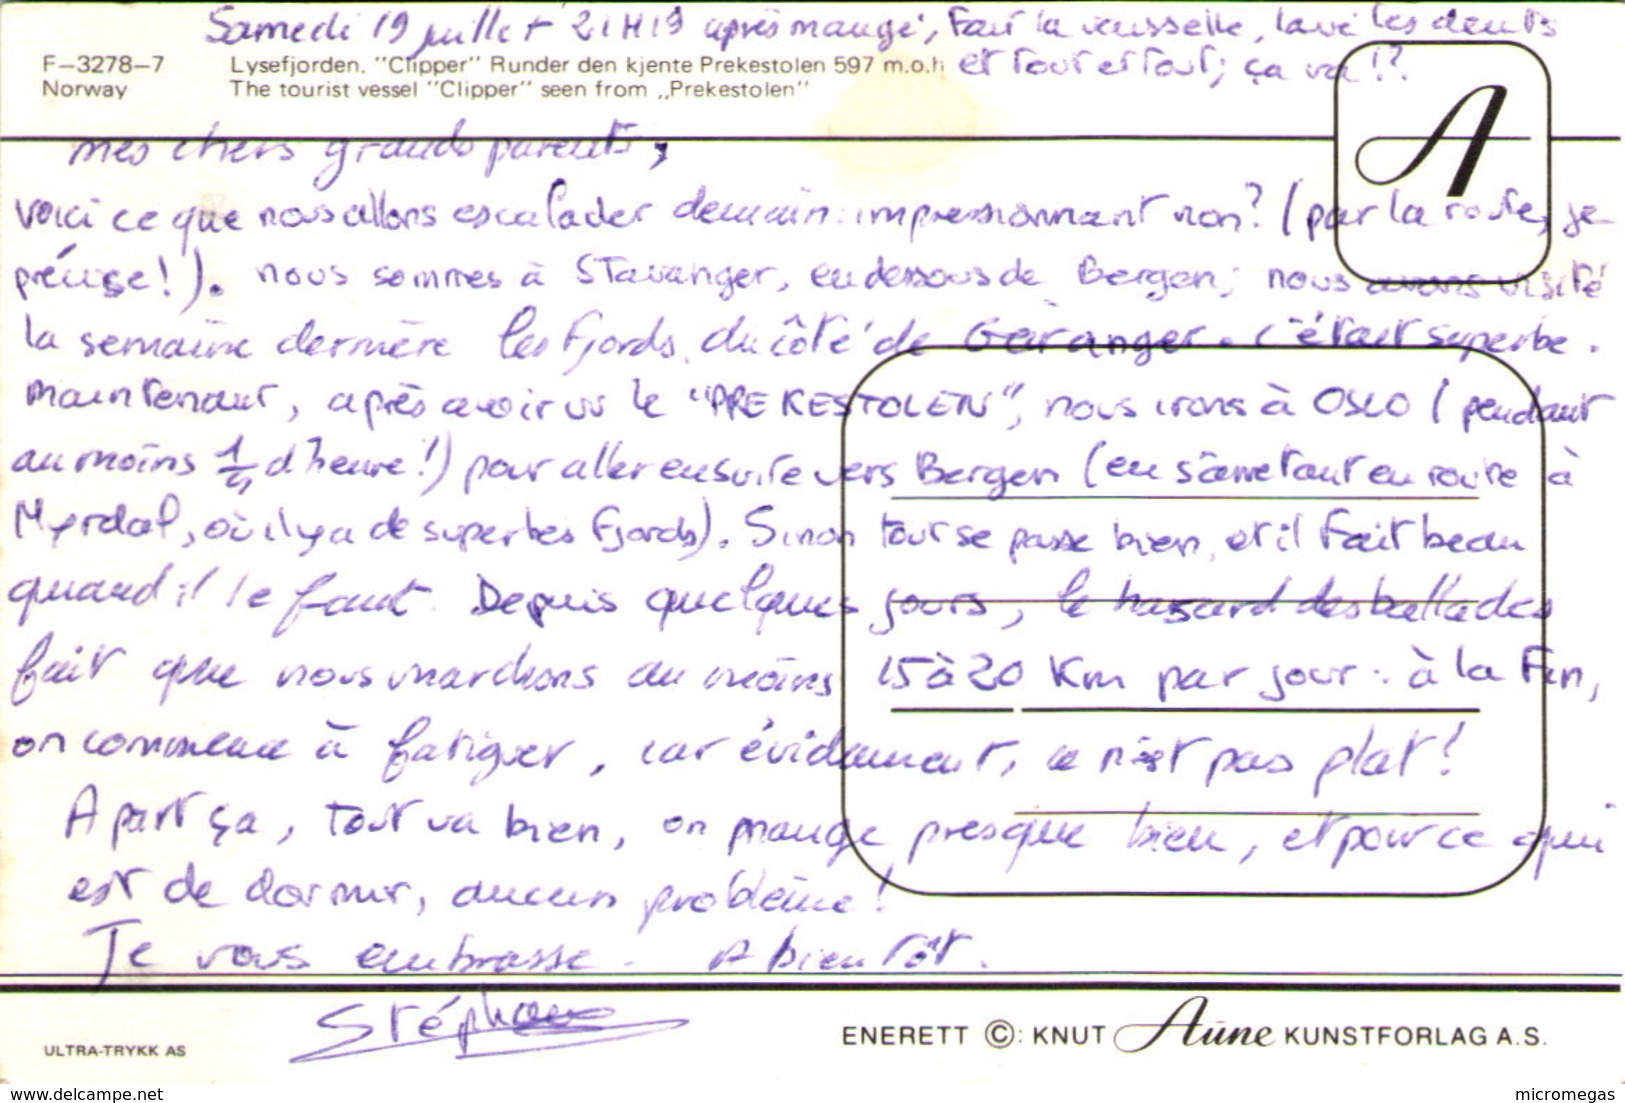 Samedi 19 juillet 21H19 après mangé, Fait la vaisselle, lavé les dents
et Tout et Tout; ça va !?.
F-3278-7
Norway
Lysefjorden. "Clipper" Runder den kjente Prekestolen 597 m.o.h
The tourist vessel "Clipper" seen from „Prekestolen"
A
mes chers grands parents,
voici ce que nous allons escalader demain: impressionnant non? (par la route, je
précise!). nous sommes à Stavanger, en dessous de Bergen; nous avons visité
la semaine dernière les Fjords, du côté de Geiranger. C'était superbe.
maintenant, après avoir vu le "PREKESTOLEN", nous irons à OSLO (pendant
au moins 1/4 d'heure!) pour aller ensuite vers Bergen (en s'arretant en route à
Myrdal, où il y a de superbes Fjords). Sinon tout se passe bien, et il Fait beau
quand il le faut. Depuis quelques jours, le hasard des ballades
fait que nous marchons au moins 15 à 20 Km par jour: à la Fin,
on commence à fatiguer, car évidament, ce n'est pas plat!
A part ça, tout va bien, on mange presque bien, et pour ce qui
est de dormir, aucun problème!
Je vous embrasse. A bientôt.
Stéphane
ULTRA-TRYKK AS
ENERETT ©: KNUT Aune KUNSTFORLAG A.S.
www.delcampe.net
micromegas